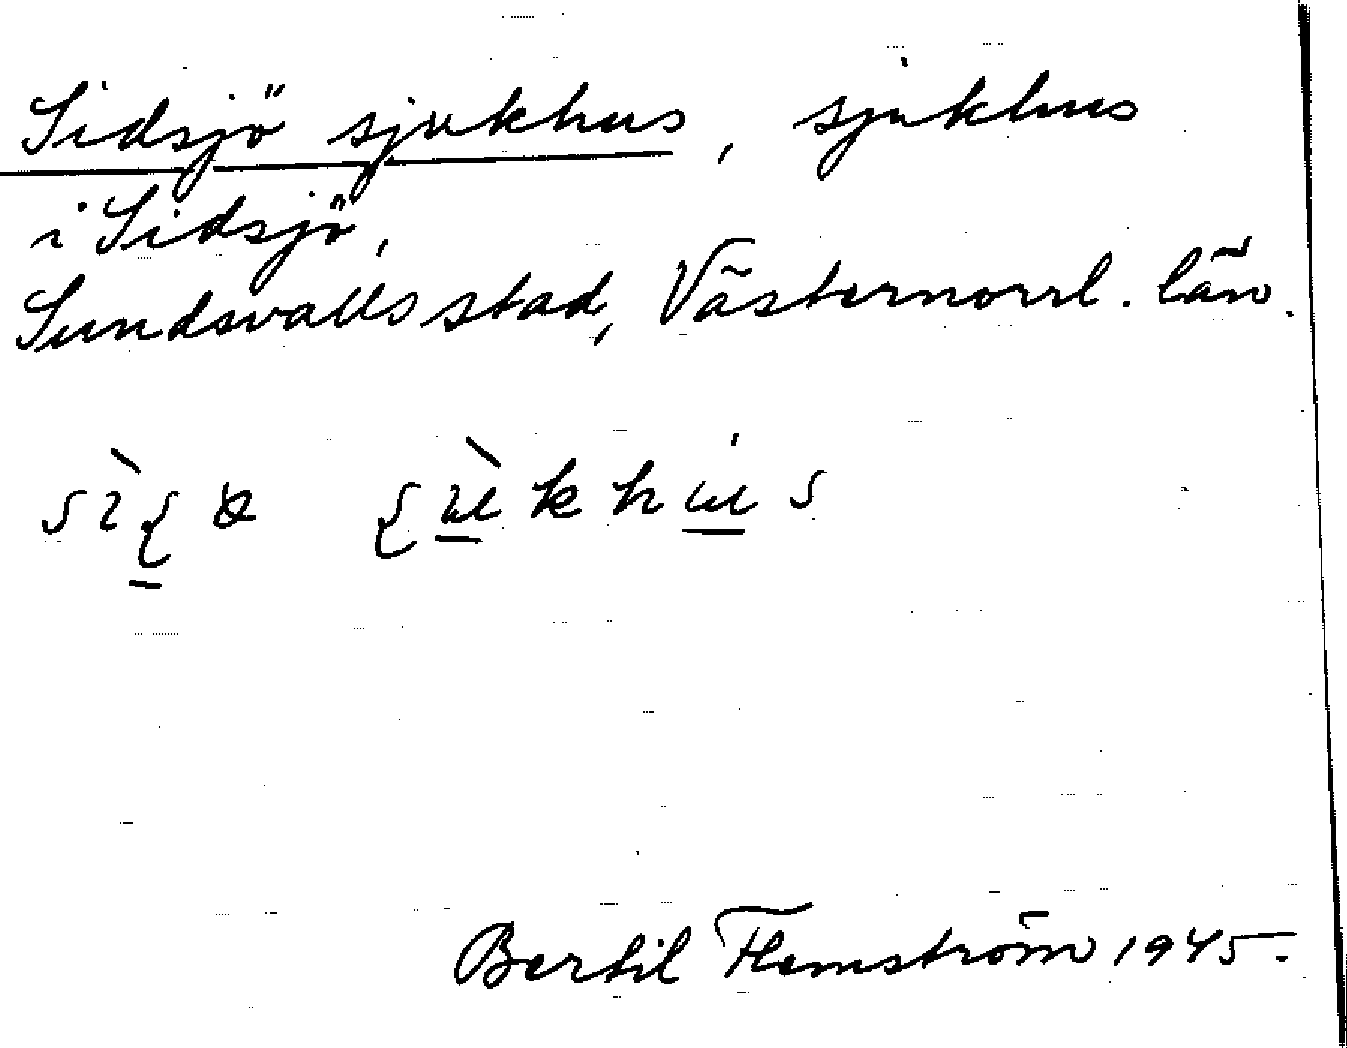 Sidsjö sjukhus, sjukhus
i Sidsjö,
Sundsvalls stad, Västernorrl. län.
Bertil Flemström 1945.